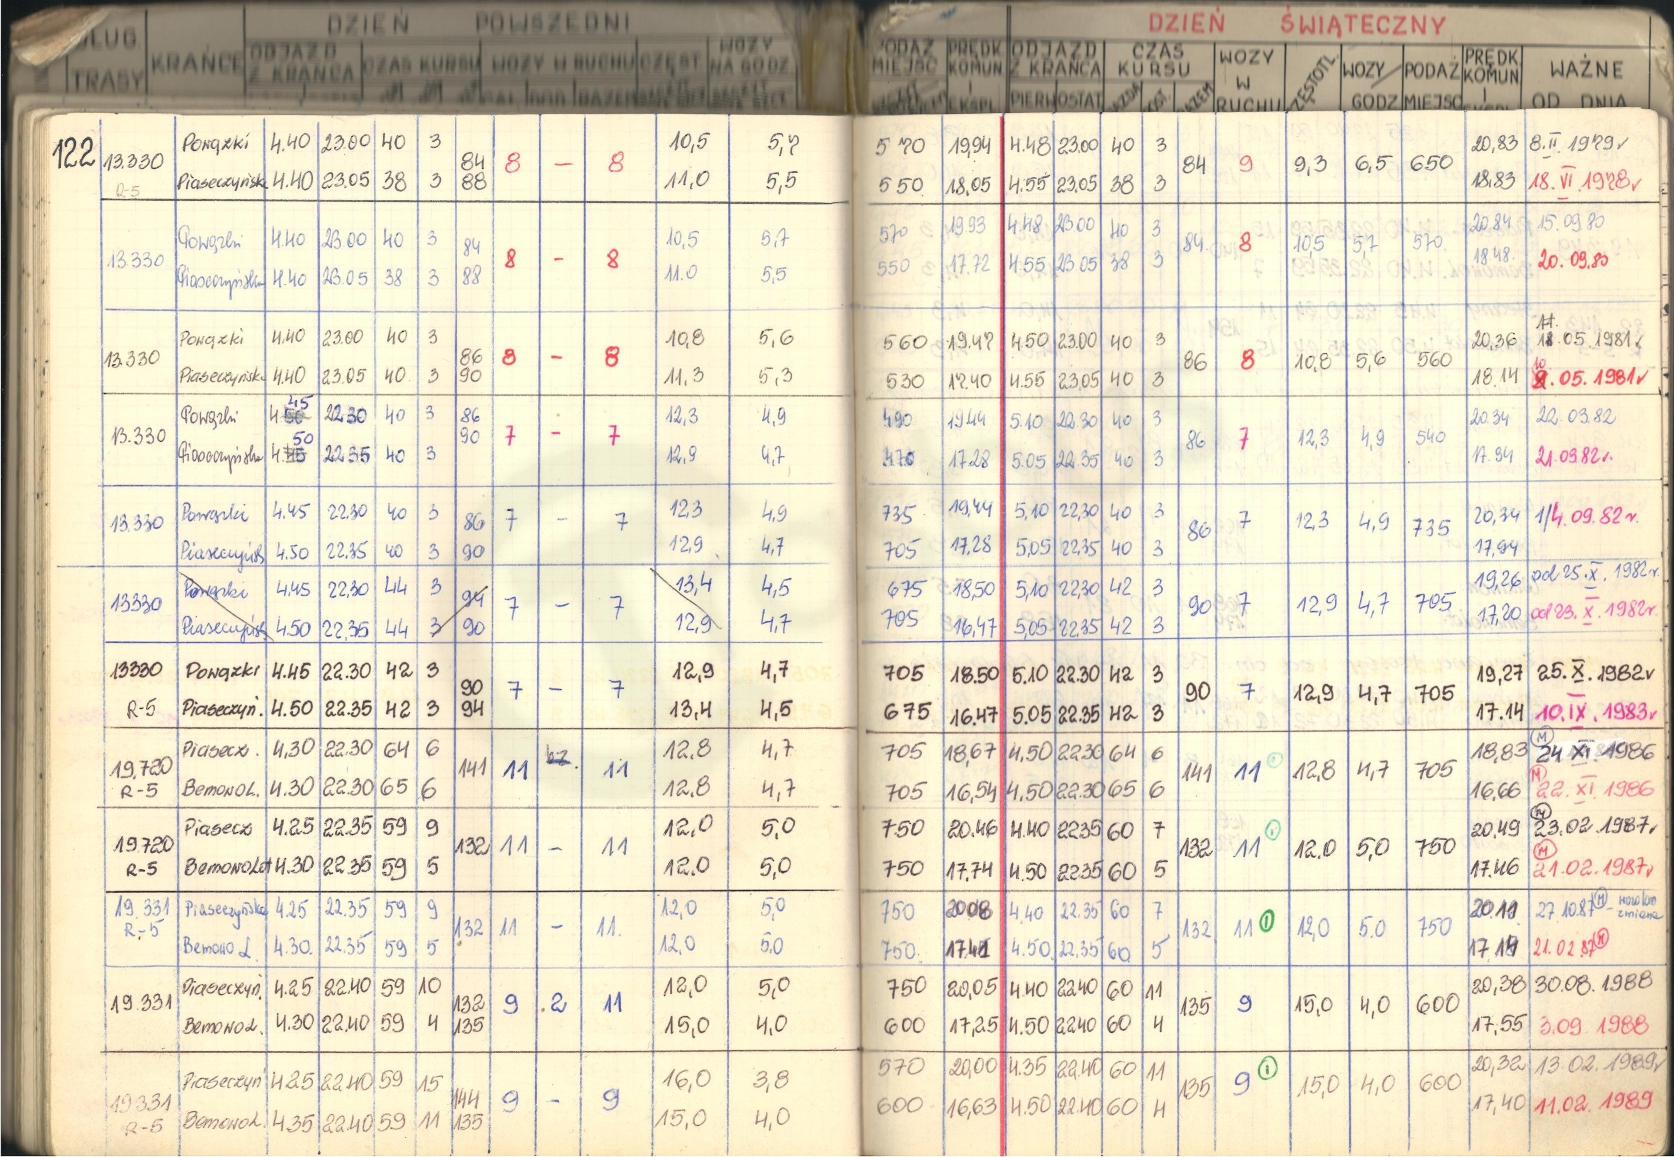 DZIEŃ POWSZEDNI DZIEŃ ŚWIĄTECZNY
DŁUG. TRASY KRAŃCE ODJAZD Z KRAŃCA CZAS KURSU WOZY W RUCHU CZĘST WOZY NA GODZ. PODAŻ MIEJSC PRĘDK KOMUN I EKSPL. ODJAZD Z KRAŃCA CZAS KURSU WOZY W RUCHU CZĘSTOTL. WOZY GODZ PODAŻ MIEJSC PRĘDK KOMUN I EKSPL WAŻNE OD DNIA
PIERW OSTAT
122 13.330 Powązki 4.40 23.00 40 3 84 8 – 8 10,5 5,7 570 19,94 4.48 23.00 40 3 84 9 9,3 6,5 650 20,83 8.II.1979r
R-5 Piaseczyńsk 4.40 23.05 38 3 88 11,0 5,5 550 18,05 4.55 23.05 38 3 18.83 18.VI.1978r
13.330 Powązki 4.40 23.00 40 3 84 8 – 8 10,5 5,7 570 19.93 4.48 23.00 40 3 84 8 10,5 5,7 570 20.84 15.09.80
Piaseczyńska 4.40 23.05 38 3 88 11.0 5,5 550 17.72 4.55 23.05 38 3 18.48 20.09.80
13.330 Powązki 4.40 23.00 40 3 86 8 – 8 10,8 5,6 560 19.47 4.50 23.00 40 3 86 8 10,8 5,6 560 20,36 11.05.1981r
Piaseczyńsk. 4.40 23.05 40 3 90 11,3 5,3 530 17.40 4.55 23.05 40 3 18.14 10.05.1981r
13.330 Powązki 4.45 22.30 40 3 86 7 – 7 12,3 4,9 490 19.44 5.10 22.30 40 3 86 7 12,3 4,9 540 20.34 22.03.82
Piaseczyńska 4.50 22.35 40 3 90 12,9 4,7 470 17.28 5.05 22.35 40 3 17.94 21.03.82r.
13.330 Powązki 4.45 22.30 40 3 86 7 – 7 12,3 4,9 735 19,44 5,10 22,30 40 3 86 7 12,3 4,9 735 20,34 1/4.09.82r.
Piaseczyńsk 4.50 22.35 40 3 90 12,9 4,7 705 17,28 5,05 22,35 40 3 17,94
13330 Powązki 4.45 22,30 44 3 94 7 – 7 13,4 4,5 675 18,50 5,10 22,30 42 3 90 7 12,9 4,7 705 19,26 od 25.X.1982r.
Piaseczyńsk 4.50 22,35 44 3 90 12,9 4,7 705 16,47 5,05 22.35 42 3 17,20 od 23.X.1982r.
13330 Powązki 4.45 22.30 42 3 90 7 – 7 12,9 4,7 705 18.50 5.10 22.30 42 3 90 7 12,9 4,7 705 19,27 25.X.1982r
R-5 Piaseczyń. 4.50 22.35 42 3 94 13,4 4,5 675 16.47 5.05 22.35 42 3 17.14 10.IX.1983r
19,720 Piasecz. 4,30 22.30 64 6 141 11 bz. 11 12.8 4,7 705 18,67 4.50 22.30 64 6 141 11 12,8 4,7 705 18,83 M 24 XI 1986
R-5 Bemowo Ł. 4.30 22.30 65 6 12.8 4,7 705 16,54 4,50 22.30 65 6 16,66 M 22.XI.1986
19.720 Piasecz 4.25 22.35 59 9 132 11 – 11 12,0 5,0 750 20.46 4.40 22.35 60 7 132 11 12,0 5,0 750 20,49 M 23.02.1987r
R-5 Bemowo Lot 4.30 22.35 59 5 12.0 5,0 750 17.74 4.50 22.35 60 5 17.46 M 21.02.1987r
19.331 Piaseczyńska 4.25 22.35 59 9 132 11 – 11. 12,0 5,0 750 20.08 4,40 22.35 60 7 132 11 12,0 5.0 750 20.11 27.10.87 M – zmiana
R-5 Bemowo Ł. 4.30. 22.35 59 5 12,0 5,0 750. 17.41 4.50. 22,35 60 5 21.02.87 M
19.331 Piaseczyń. 4.25 22.40 59 10 132 9 . 2 11 12,0 5,0 750 20,05 4.40 22.40 60 11 135 9 15,0 4,0 600 20,38 30.08.1988
Bemowo Ł. 4.30 22.40 59 4 135 15,0 4,0 600 17,25 4.50 22.40 60 4 17,55 3.09.1988
19331 Piaseczyń 4.25 22.40 59 15 144 9 – 9 16,0 3,8 570 20,00 4.35 22.40 60 11 135 9 15,0 4,0 600 20,32 13.02.1989r
R-5 Bemowo Ł. 4.35 22.40 59 11 135 15,0 4,0 600 16,63 4.50 22.40 60 4 17,40 11.02.1989